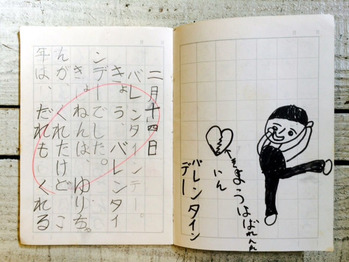 二月十四日
バレンタインデー。
きょう、バレンタイ
ンデーでした。
きょねんは、ゆりち
んが、くれたけど こ
年は、だれも くれる
いん
バレンタイン
デー